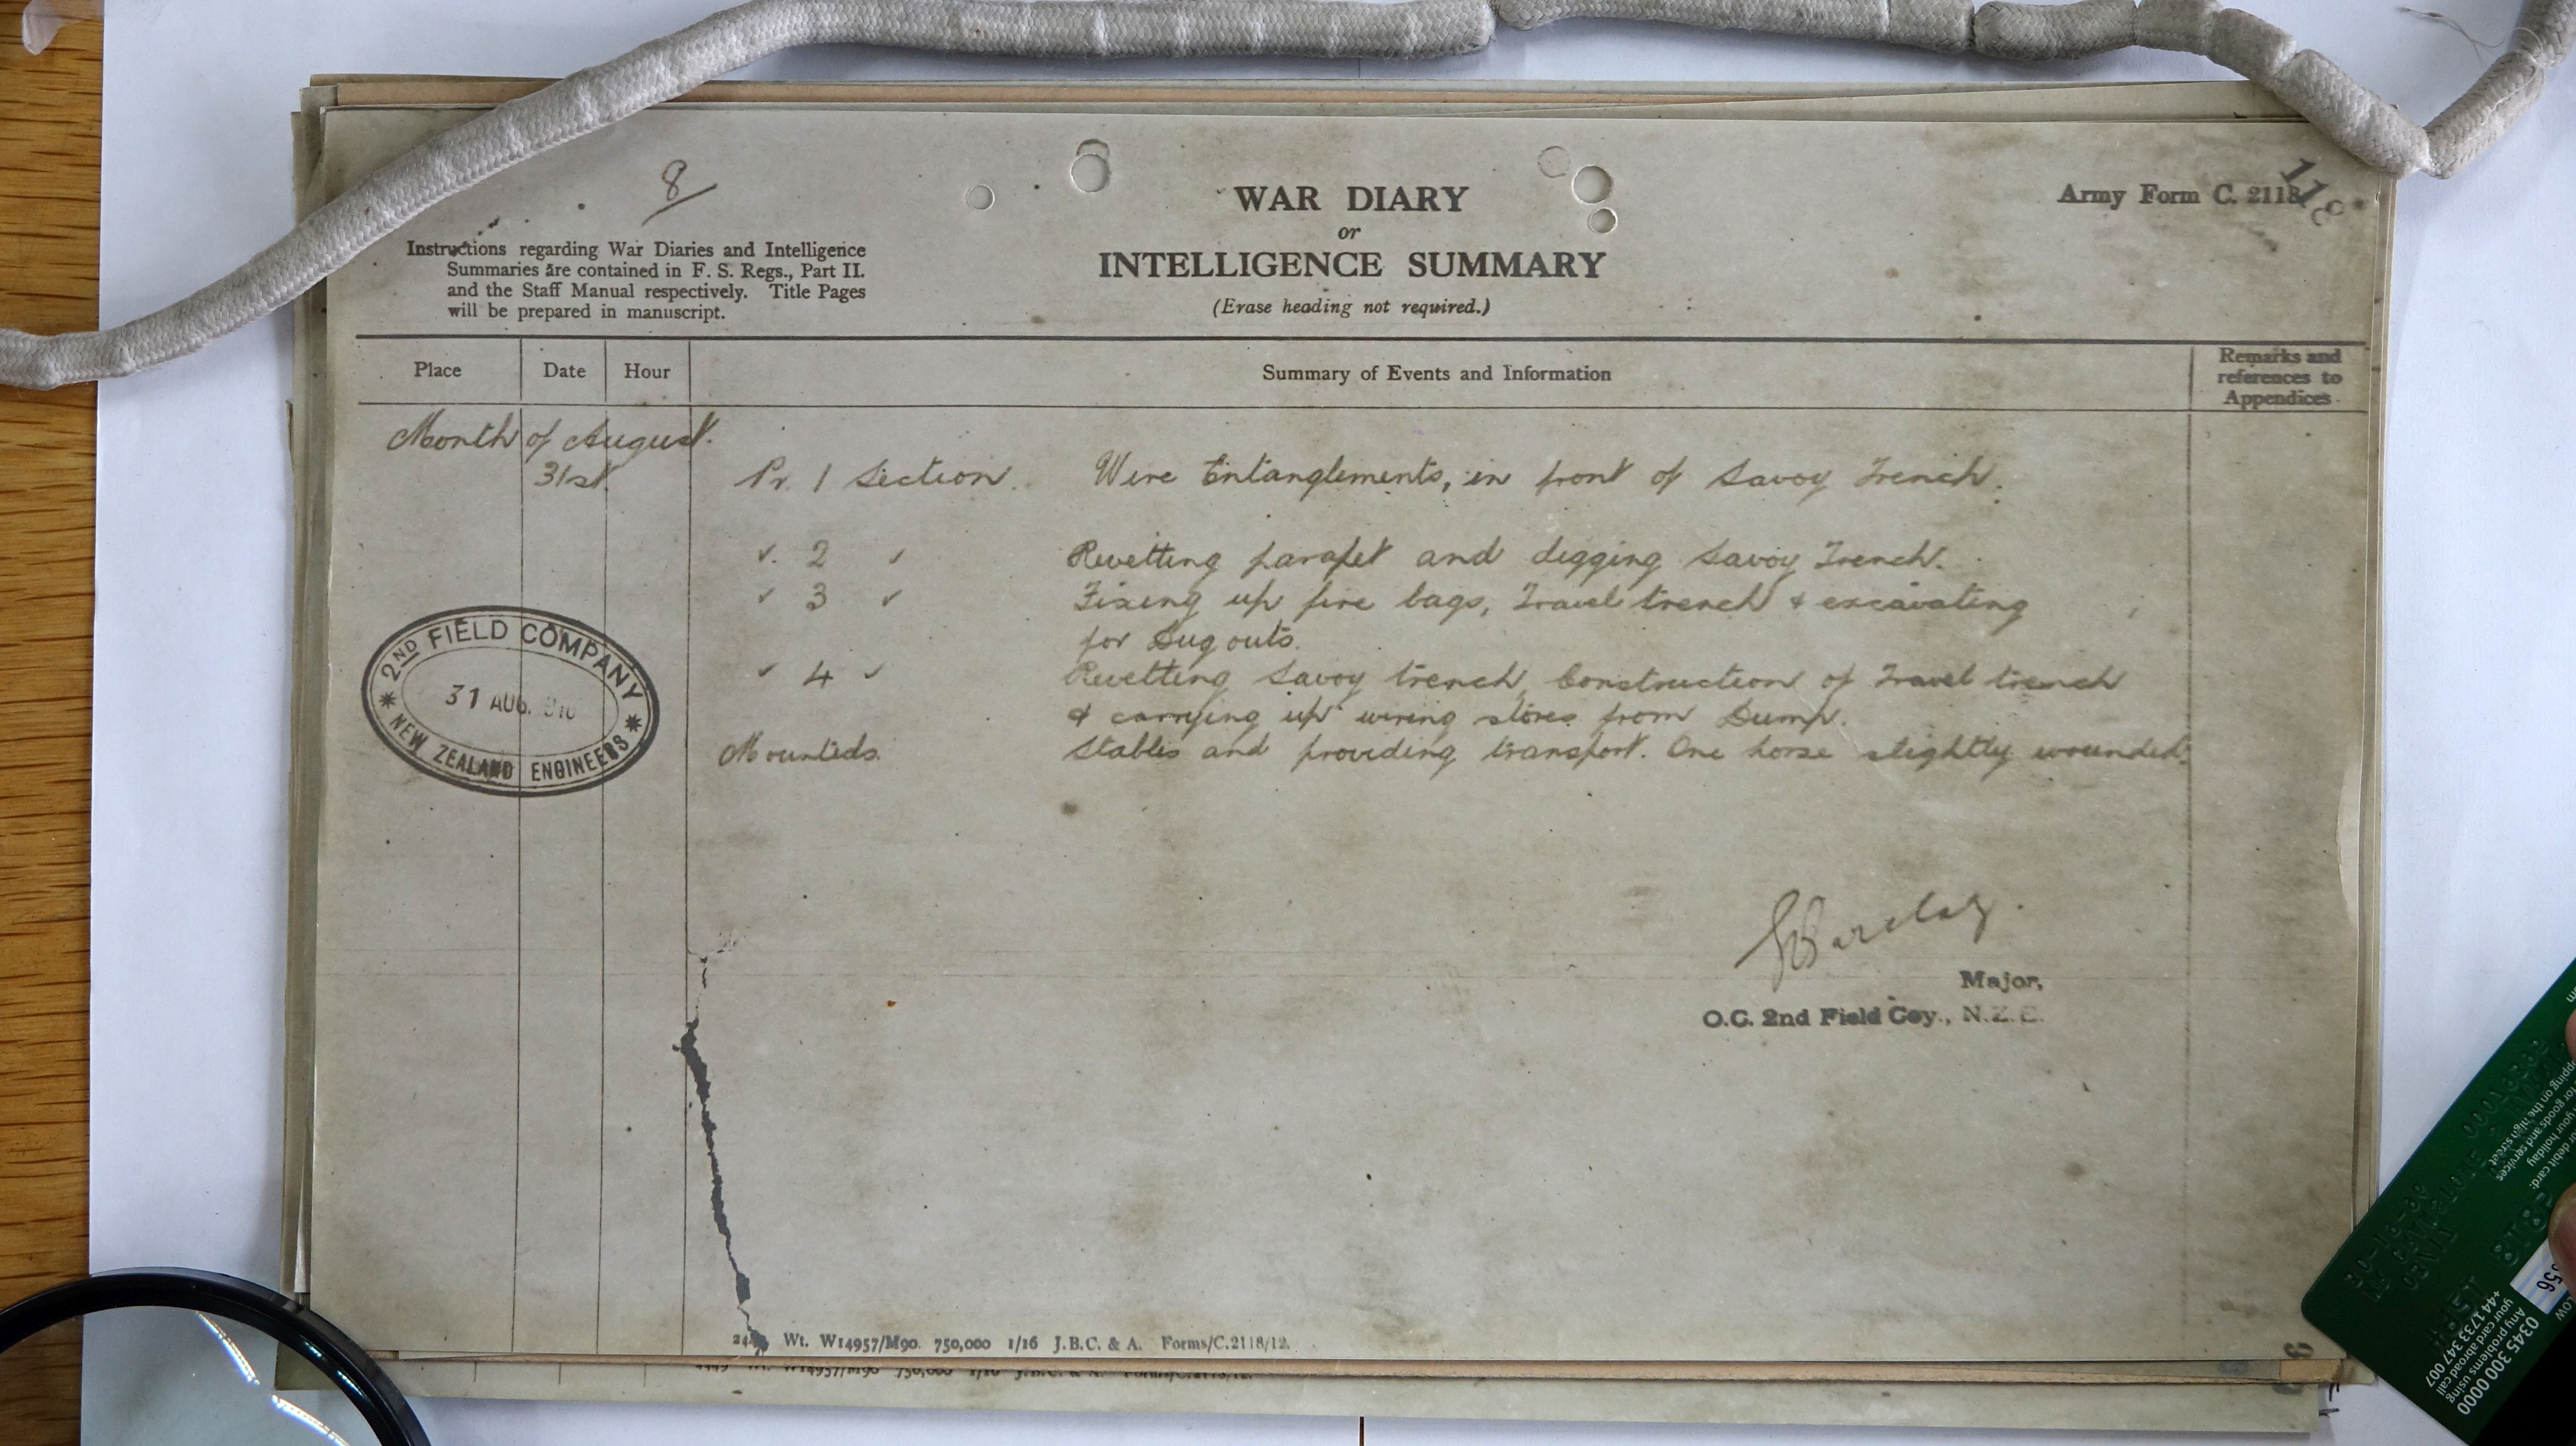 8
WAR DIARY
or
INTELLIGENCE SUMMARY
(Erase heading not required.)
Army Form C. 2118
Instructions regarding War Diaries and Intelligence
Summaries are contained in F. S. Regs., Part II.
and the Staff Manual respectively. Title Pages
will be prepared in manuscript.
Place Date Hour Summary of Events and Information Remarks and references to Appendices
Month of August.
31st. 1 Section. Wire Entanglements, in front of Savoy Trench.
2 Revetting parapet and digging Savoy Trench.
3 Fixing up fire bags, Travel trench & excavating
for Dug outs.
4 Revetting Savoy trench, Construction of Travel trench
& carrying up wiring stores from Dump.
Mounteds. Stables and providing transport. One horse slightly wounded.
2ND FIELD COMPANY
31 AUG.
NEW ZEALAND ENGINEERS
Barclay.
Major,
O.C. 2nd Field Coy., N.Z.E.
Wt. W14957/M90. 750,000 1/16 J.B.C. & A. Forms/C.2118/12.
0345 300 0000
Any problems using
your card abroad call
+44 1733 347 007